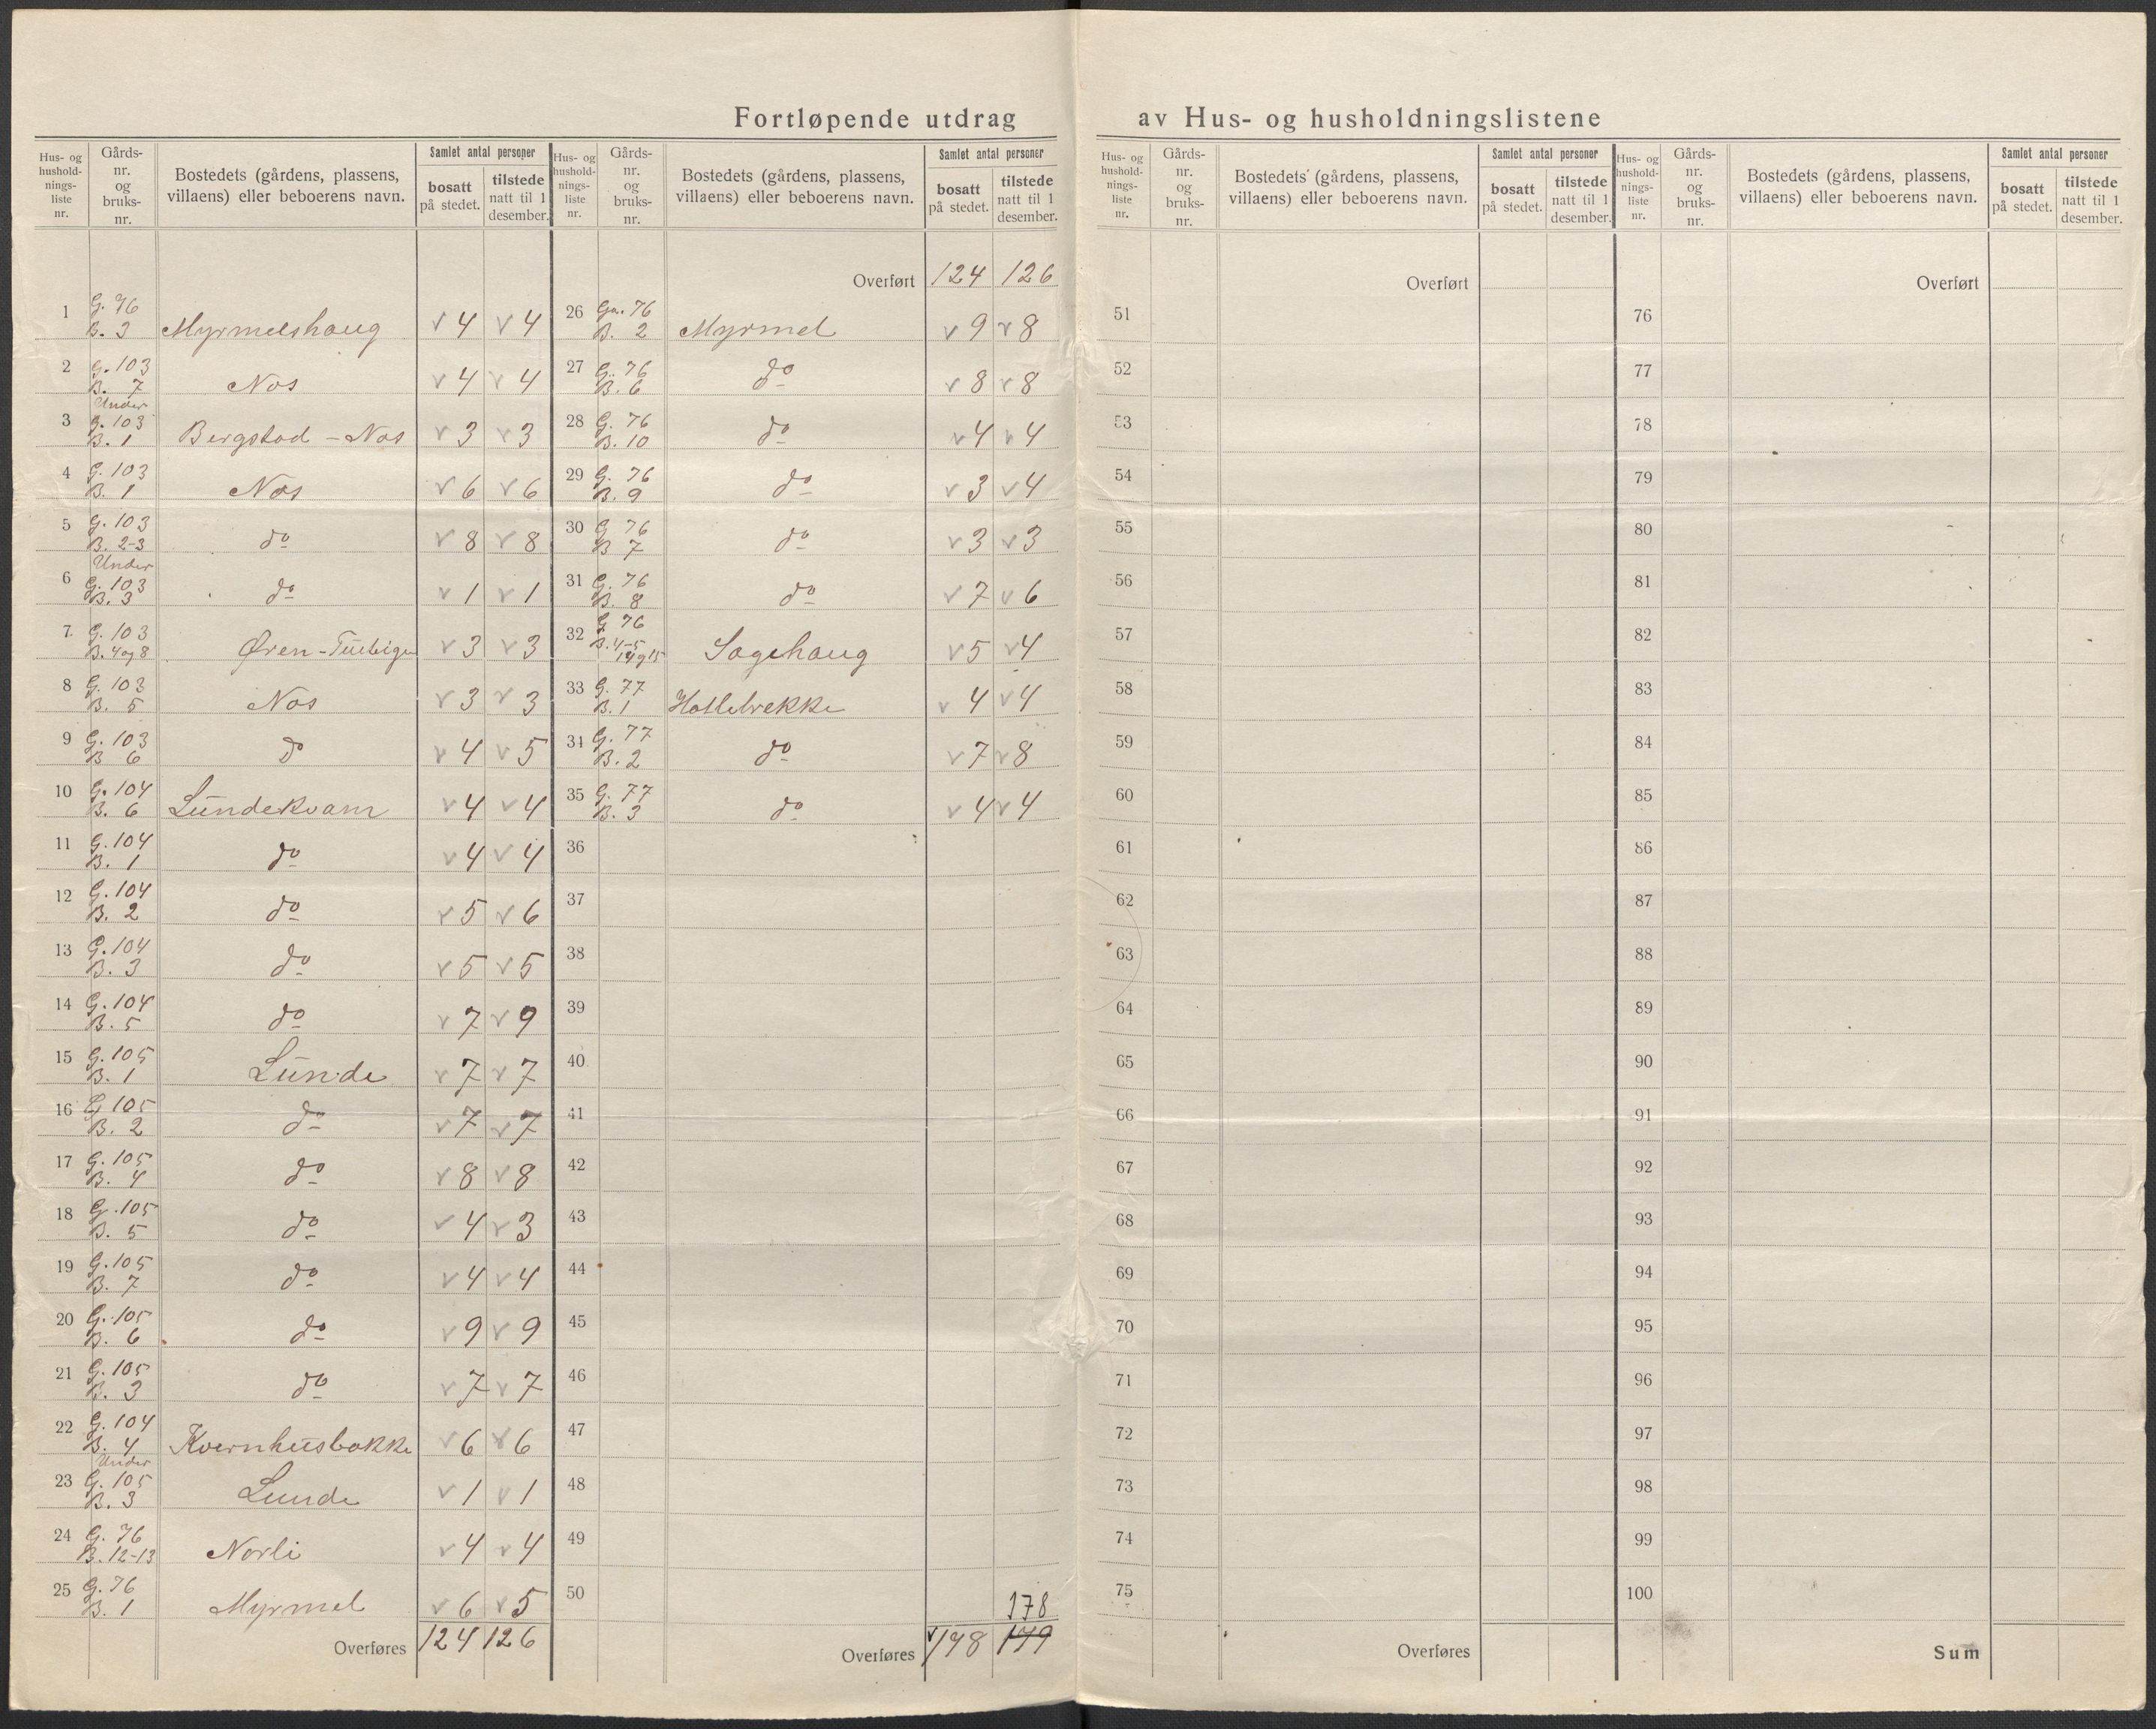 Fortløpende utdrag av Hus- og husholdningslistene
Hus- og hushold-nings-liste nr. Gårds-nr. og bruks-nr. Bostedets (gårdens, plassens, villaens) eller beboerens navn. Samlet antal personer bosatt på stedet. tilstede natt til 1 desember.
1 G. 76 B. 3 Myrmelshaug v 4 v 4
2 G. 103 B. 7 Nos v 4 v 4
3 Under G. 103 B. 1 Bergstad - Nos v 3 v 3
4 G. 103 B. 1 Nos v 6 v 6
5 G. 103 B. 2-3 do v 8 v 8
6 Under G. 103 B. 3 do v 1 v 1
7 G. 103 B. 4 og 8 Øren - v 3 v 3
8 G. 103 B. 5 Nos v 3 v 3
9 G. 103 B 6 do v 4 v 5
10 G. 104 B. 6 Lundekvam v 4 v 4
11 G. 104 B. 1 do v 4 v 4
12 G. 104 B. 2 do v 5 v 6
13 G. 104 B. 3 do v 5 v 5
14 G. 104 B. 5 do v 7 v 9
15 G. 105 B. 1 Lunde v 7 v 7
16 G 105 B. 2 do v 7 v 7
17 G. 105 B. 4 do v 8 v 8
18 G. 105 B. 5 do v 4 v 3
19 G. 105 B. 7 do v 4 v 4
20 G. 105 B. 6 do v 9 v 9
21 G. 105 B. 3 do v 7 v 7
22 G. 104 B. 4 Kvernhusbakke v 6 v 6
23 Under G. 105 B. 3 Lunde v 1 v 1
24 G. 76 B. 12-13 Norli v 4 v 4
25 G. 76 B. 1 Myrmel v 6 v 5
Overføres 124 126
Hus- og hushold-nings-liste nr. Gårds-nr. og bruks-nr. Bostedets (gårdens, plassens, villaens) eller beboerens navn. Samlet antal personer bosatt på stedet. tilstede natt til 1 desember.
Overført 124 126
26 Ga. 76 B. 2 Myrmel v 9 v 8
27 G. 76 B. 6 do v 8 v 8
28 G. 76 B. 10 do v 4 v 4
29 G. 76 B. 9 do v 3 v 4
30 G 76 B 7 do v 3 v 3
31 G. 76 B. 8 do v 7 v 6
32 G 76 B. 4-5 14 og 15 Sagehaug v 5 v 4
33 G. 77 B. 1 Hatlebrekke v 4 v 4
34 G. 77 B. 2 do v 7 v 8
35 G. 77 B. 3 do v 4 v 4
36
37
38
39
40
41
42
43
44
45
46
47
48
49
50
178
Overføres v 178 179
Hus- og hushold-nings-liste nr. Gårds-nr. og bruks-nr. Bostedets (gårdens, plassens, villaens) eller beboerens navn. Samlet antal personer bosatt på stedet. tilstede natt til 1 desember.
Overført
51
52
53
54
55
56
57
58
59
60
61
62
63
64
65
66
67
68
69
70
71
72
73
74
75
Overføres
Hus- og hushold-nings-liste nr. Gårds-nr. og bruks-nr. Bostedets (gårdens, plassens, villaens) eller beboerens navn. Samlet antal personer bosatt på stedet. tilstede natt til 1 desember.
Overført
76
77
78
79
80
81
82
83
84
85
86
87
88
89
90
91
92
93
94
95
96
97
98
99
100
Sum